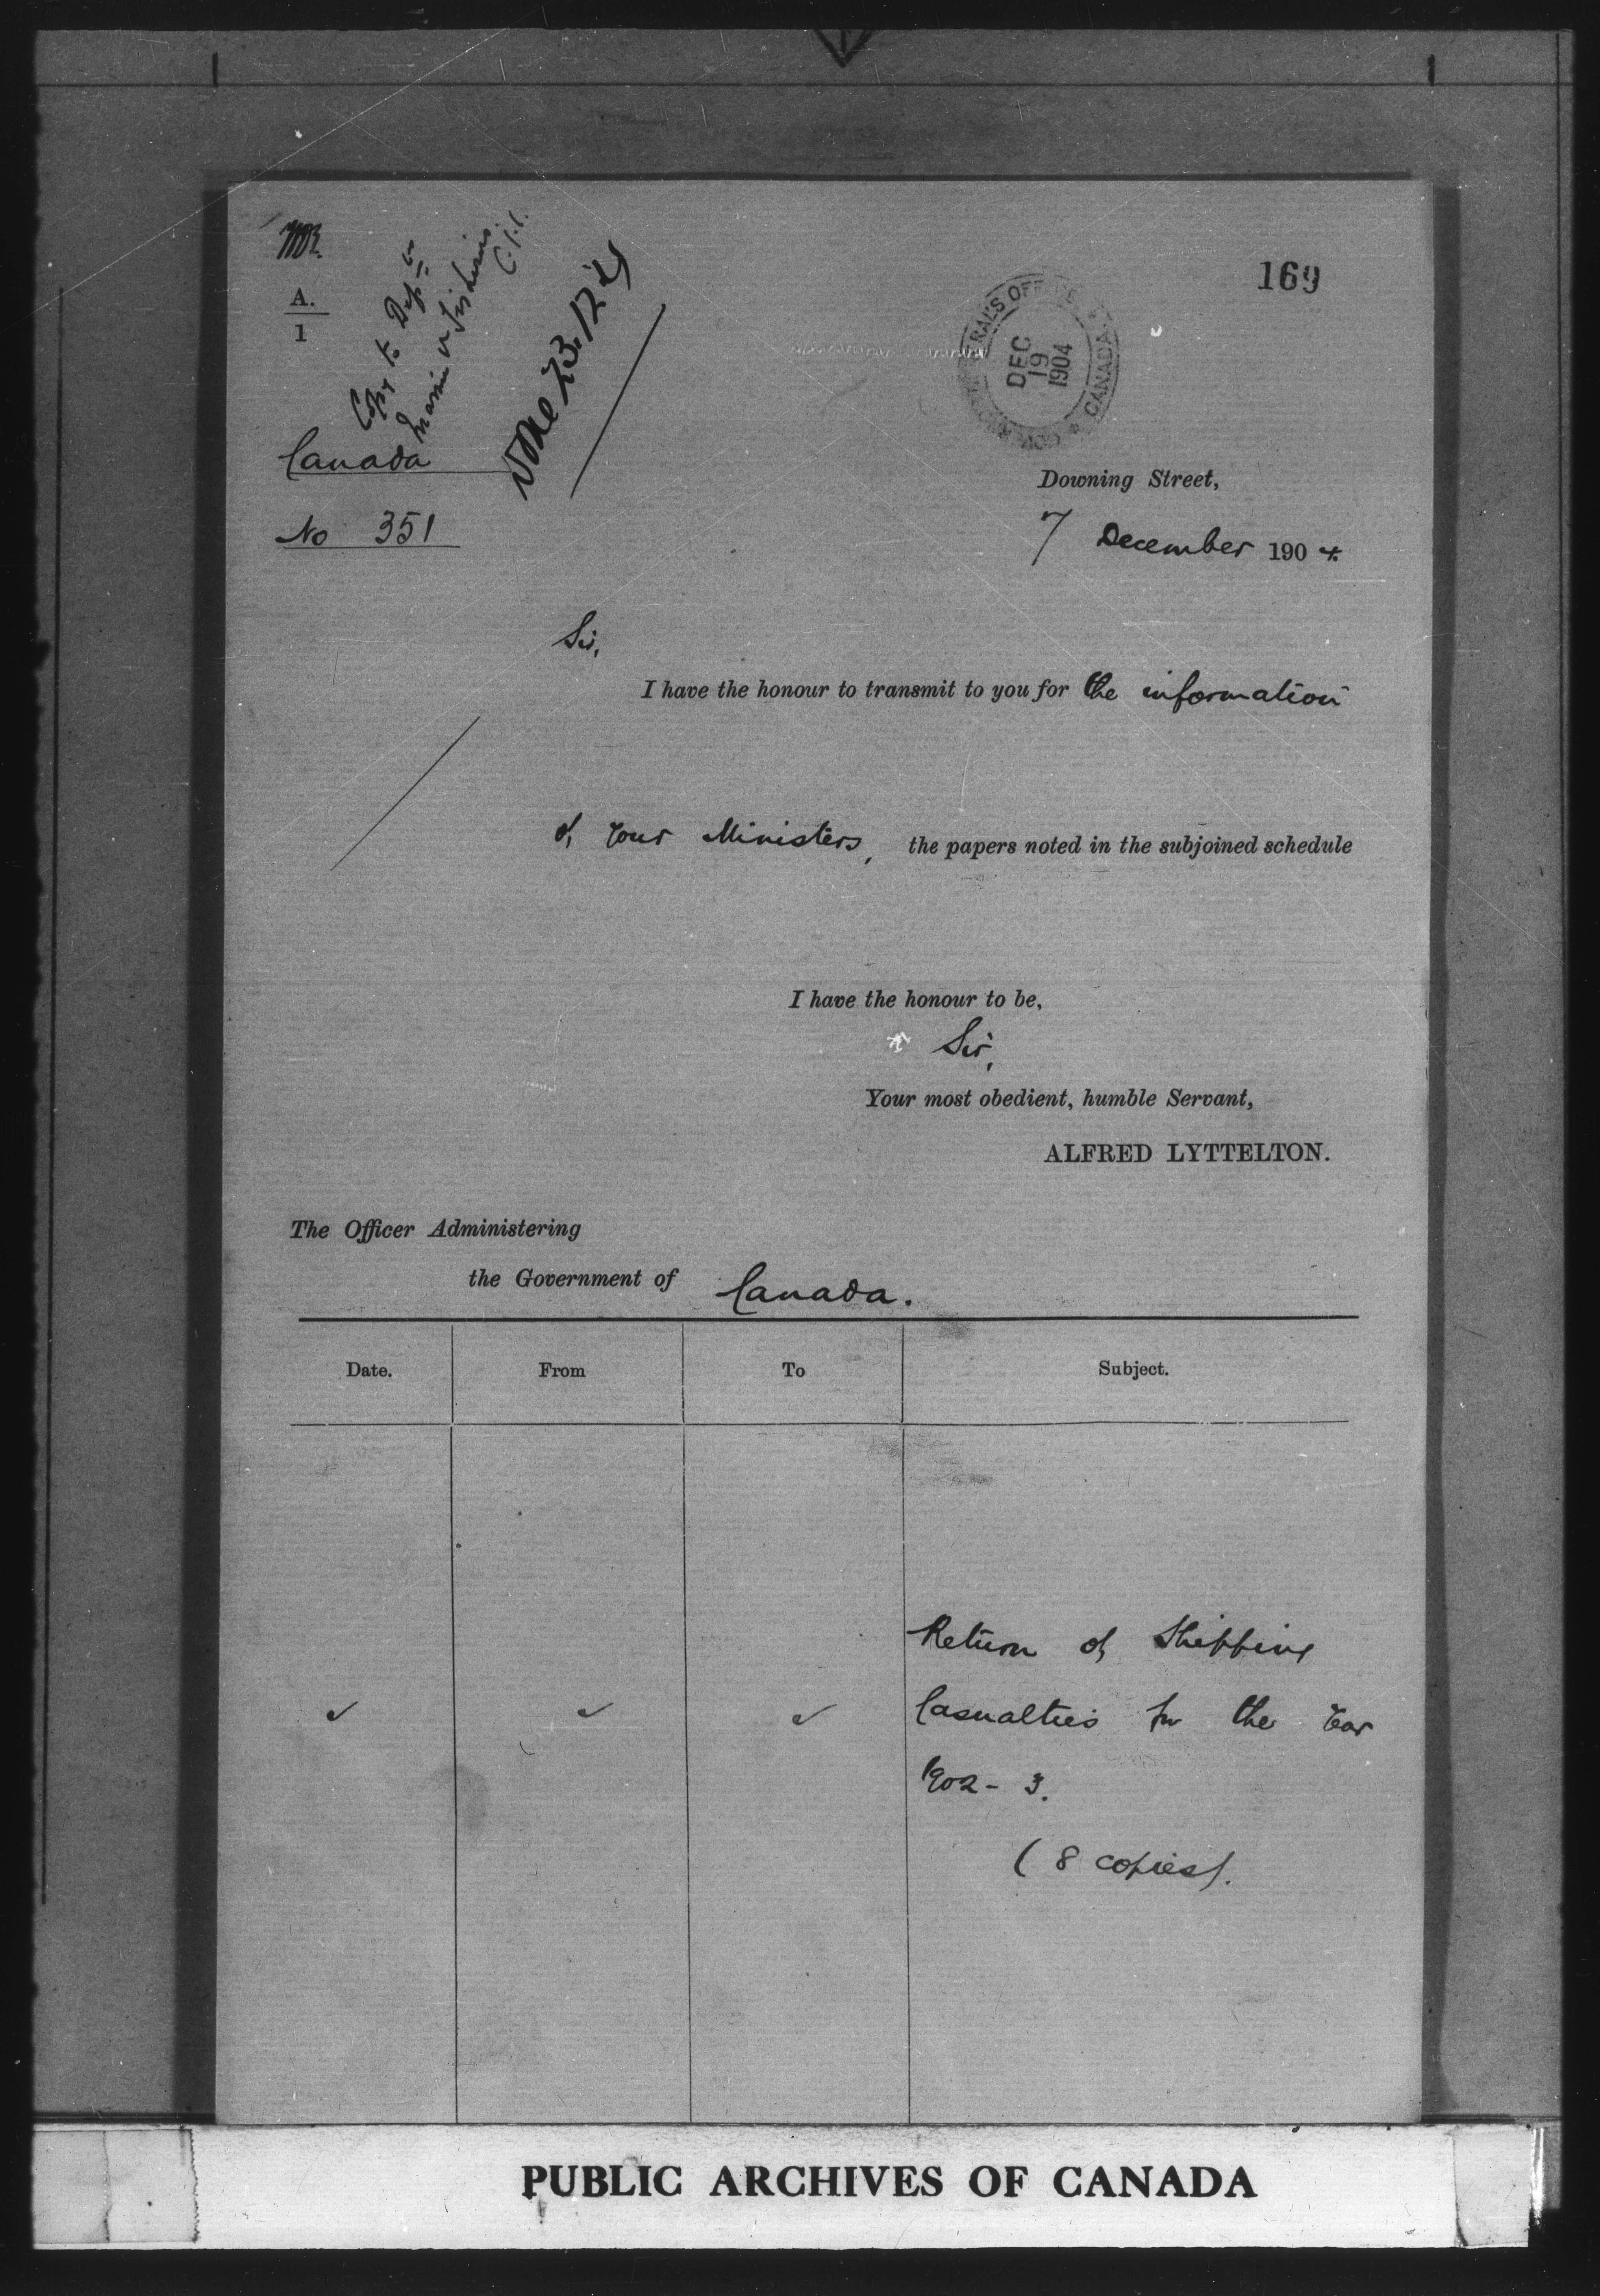 169
A.
1
Copy to Dept
Marine & Fisheries.
Done 23.12.4
GOVERNOR GENERAL'S OFFICE
CANADA
DEC
19
1904
Canada
No 351
Downing Street,
7 December 1904.
Sir,
I have the honour to transmit to you for the information
of your Ministers, the papers noted in the subjoined schedule
I have the honour to be,
Sir,
Your most obedient, humble Servant,
ALFRED LYTTELTON.
The Officer Administering
the Government of Canada.
Date. From To Subject.
Return of Shipping
Casualties for the Year
1902-3.
(8 copies).
PUBLIC ARCHIVES OF CANADA